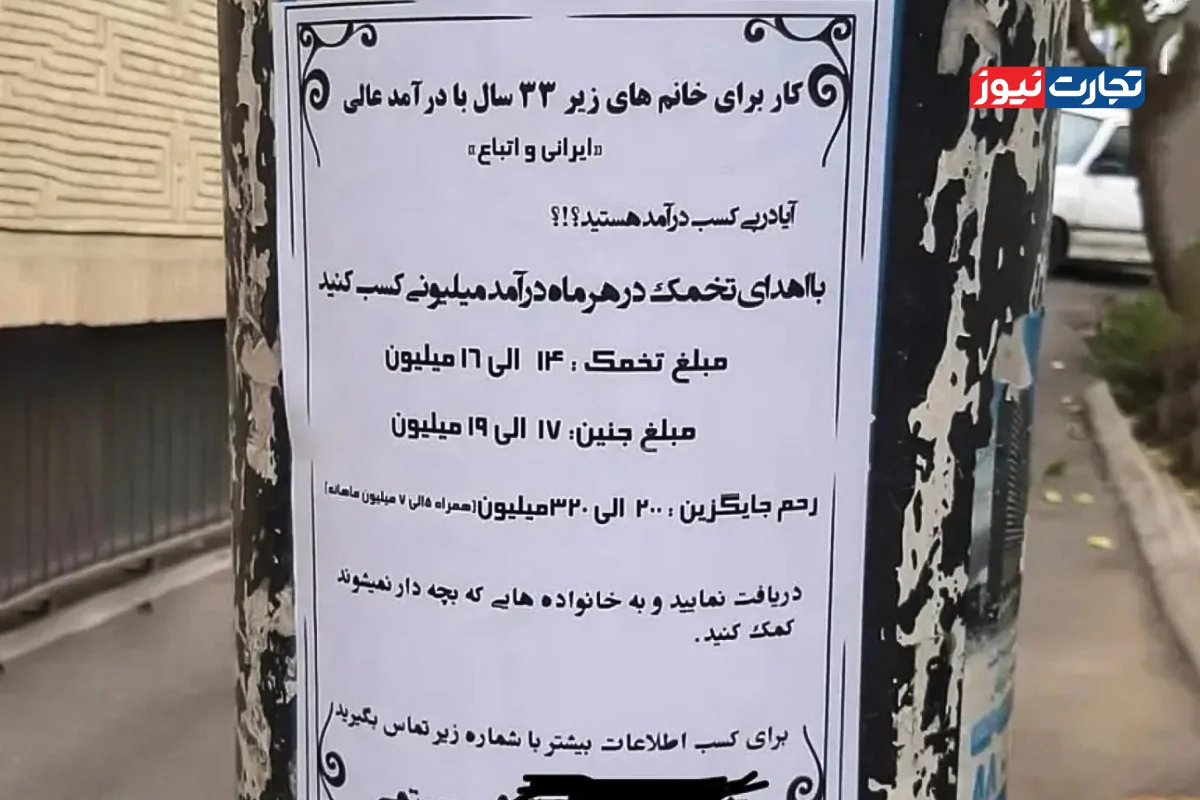 تجارت نیوز
کار برای خانم های زیر ۳۳ سال با درآمد عالی
«ایرانی و اتباع»
آیا در پی کسب درآمد هستید؟!؟
با اهدای تخمک در هر ماه درآمد میلیونی کسب کنید
مبلغ تخمک : ۱۴ الی ۱۶ میلیون
مبلغ جنین: ۱۷ الی ۱۹ میلیون
رحم جایگزین : ۲۰۰ الی ۳۲۰ میلیون (همراه ۵ الی ۷ میلیون ماهانه)
دریافت نمایید و به خانواده هایی که بچه دار نمیشوند
کمک کنید .
برای کسب اطلاعات بیشتر با شماره زیر تماس بگیرید